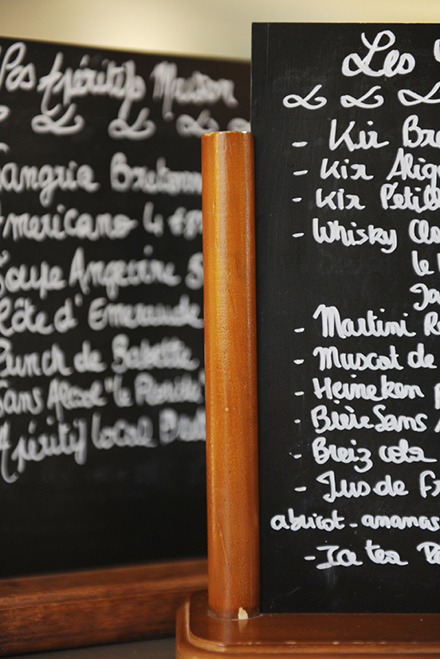 Nos Apéritifs Maison
Sangria Bretonne
Americano
Soupe Angevine
Côte d'Emeraude
Punch de Babette
Sans Alcool "le
Apéritif local
Les
- Kir Bre
- Kir
- Kir Pétil
- Whisky
le
- Martini R
- Muscat de
- Heineken
- Bière Sans A
- Breiz cola
- Jus de F
abricot-ananas
- Ice tea